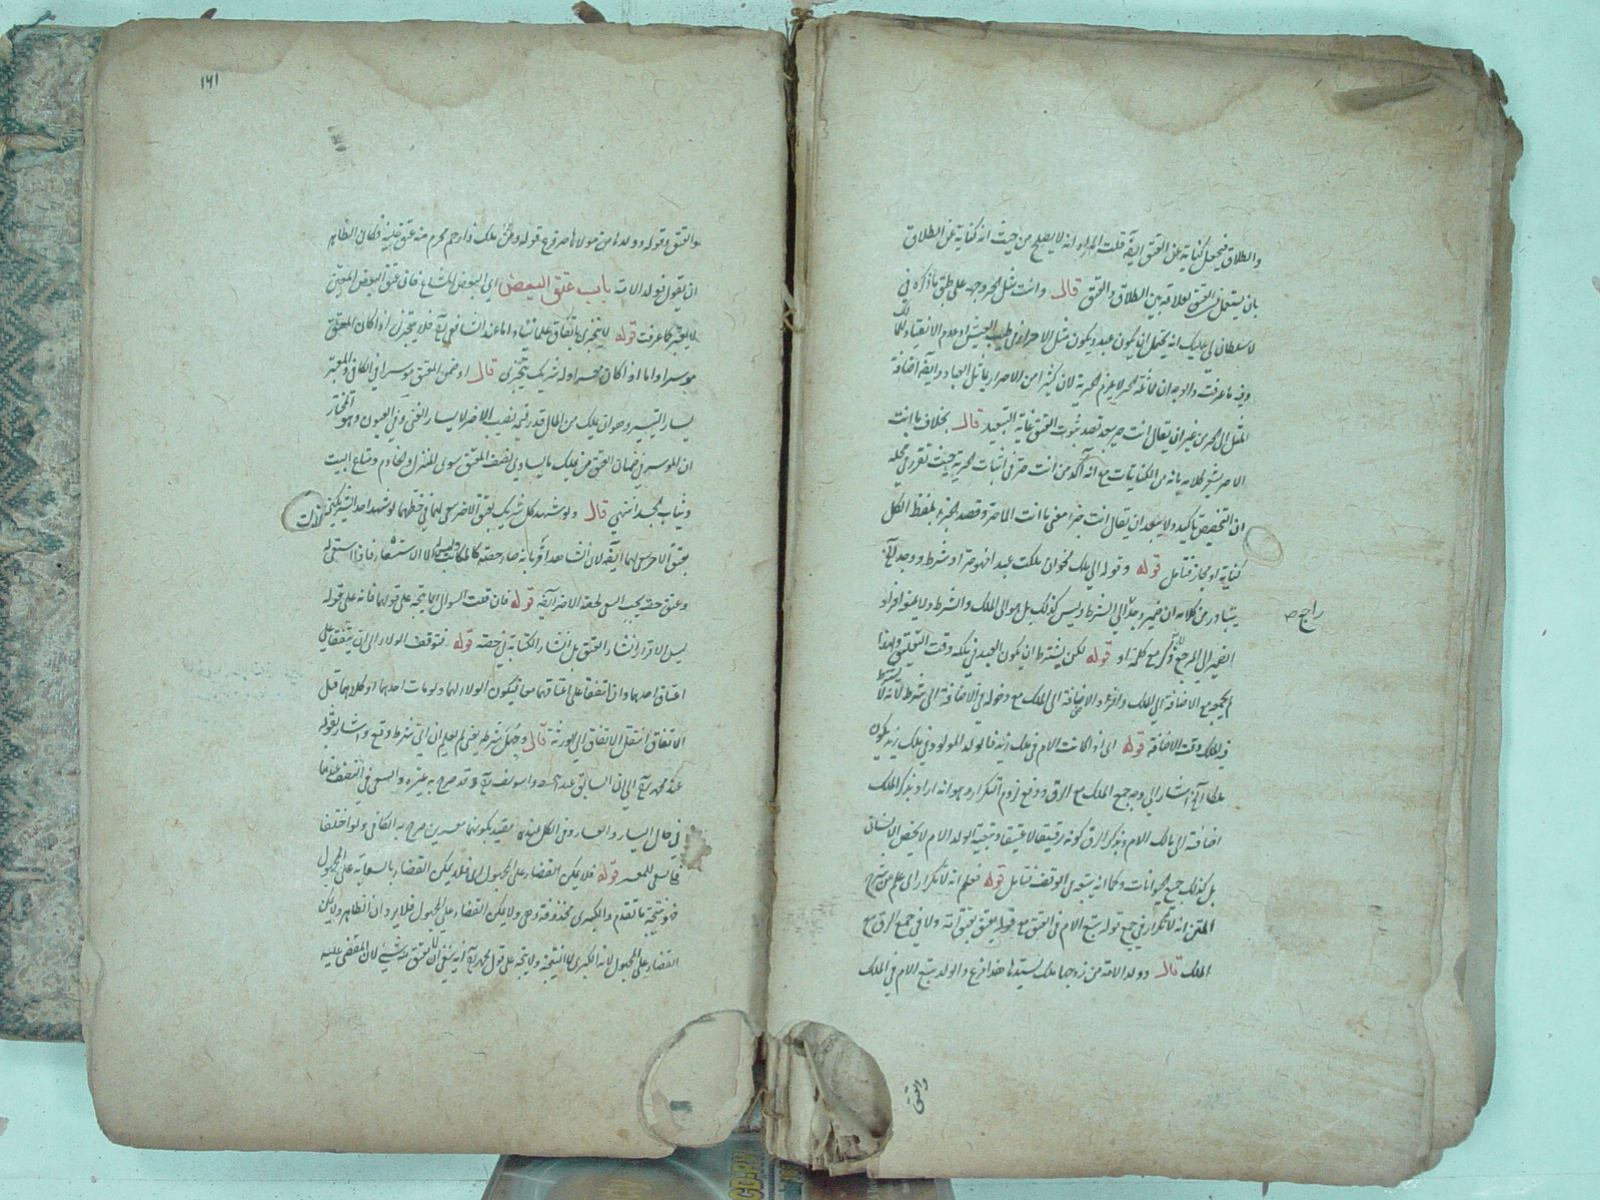 والطلاق فيجعل كناية عن العتق ايضا قلت المراد انه لا يصلح من حيث انه كناية عن الطلاق
بان يستعمل العتق لعلاقة بين الطلاق والعتق قال وانت مثل الحر وجهه على طبق ما ذكره في
لا سلطان لي عليك انه يحتمل ان يكون عبدا ويكون مثل الاحرار في طيب العيش وعدم الانقياد
وفيه ما عرفت والوجه ان لا يلزم الحرية لان كثيرا من الاحرار
الى الحر من غير ان يقال انت حر بعد قصد ثبوت العتق غاية التبعيد قال بخلاف ما انت
الا حر كلامه بانه من الكنايات مع انه آكد من انت حر في اثبات الحرية حيث تقرر في محله
ان التخصيص تأكيد ولا يبعد ان يقال انت حر معنى ما انت الا حر وقصد الجزء بلفظ الكل
كناية او مجاز فتأمل قوله وقوله الى ملك نحو ان ملكت عبدا فهو حر او شرط ووجد
يتبادر من كلامه ان ضمير وجد الى الشرط وليس كذلك بل هو الى الملك والشرط ولا افراد
راجع صح
الضمير الى المرجع مع كلمة او قوله لكن يشترط ان يكون العبد في ملكه وقت التعليق
مع الاضافة الى الملك الاضافة الى الملك مع دخوله في الاضافة الى شرط لانه لا
في الملك وقت الاضافة قوله اي اذا كانت الام في ملك زيد فالولد المولود في ملك زيد يكون
اشار الى وجه جمع الملك مع الرق ودفع لزوم التكرار وهو انه اراد بذكر الملك
اضافته الى مالك الام وبذكر الرق كونه رقيقا لا عتيقا وتبعية الولد الام لا يخص الانسان
بل كذلك جميع الحيوانات وكما انه يتبع في الوقف فتأمل قوله فعلم انه لا تكرار اي علم من شرح
المتن انه لا تكرار في جمع قوله يتبع الام في العتق مع قوله يعتق بعتق امه ولا في جمع الرق مع
الملك قال وولد الامة من زوجها ملك لسيدها هذا فرع والولد يتبع الام في الملك
والعتق
١٦١
والعتق وقوله وولدها من مولاها حر فرع قوله ومن ملك ذا رحم محرم منه عتق عليه فكان الظاهر
ان يقول فولد الامة باب عتق البعض اي البعض الشايع فان عتق البعض المعين
لا يعتبر كما عرفت قوله لا يتجزى باتفاق علمائنا واما عند الشافعي فلا يتجزى اذا كان المعتق
موسرا واما اذا كان معسرا وله شريك يتجزى قال او ضمن المعتق موسرا في الكافي والمعتبر
يسار التيسير وهو ان يملك من المال قدر قيمة نصيب الآخر لا يسار الغنى وفي العيون وهو المختار
ان الموسر في ضمان العتق من يملك ما يساوي نصف المعتق سوى المنزل والخادم ومتاع البيت
وثياب جسده انتهى قال ولو شهد كل شريك بعتق الآخر سعى لهما في حظهما لو شهد احد الشريكين
بعتق الآخر سعى لهما ايضا لان الشاهد اقر بانه صار حصته كالمكاتب وليس له الا الاستسعاء فاذا استسعى له
وعتق حصته يجب السعي لحصة الآخر ايضا قوله فان قلت السؤال انما يتجه على قولهما فانه على قوله
ليس الاقرار انشاء العتق بل انشاء الكتابة في حصته قوله فتوقف الولاء الى ان يتفقا على
اعتاق احدهما وان اتفقا على اعتاقهما معا فيكون الولاء لهما ولو مات احدهما او كلاهما قبل
الاتفاق انتقل الاتفاق الى الورثة قال وجهل شرطه يعني لم يعلم ان اي شرط وقع واشار بقوله
عند محمد الى ان السابق عند ابي حنيفة وابي يوسف وقد صرح به غيره والسعي في النصف عندهما
في حال اليسار والعسار وفي الكل عنده يقيد بكونهما معسرين صرح به الكافي ولو اختلفا
فالسعي للمعسر قوله فلا يمكن القضاء على المجهول اي فلا يمكن القضاء بالسعاية على المجهول
فهو نتيجة ما تقدم والكبرى محذوفة وهي ولا يمكن القضاء على المجهول فلا يرد ان الظاهر ولا يمكن
القضاء على المجهول لانه الكبرى لا النتيجة ولا يتجه على قول محمد انه ينبغي ان لا يعتق منه شيء لان المقضي عليه